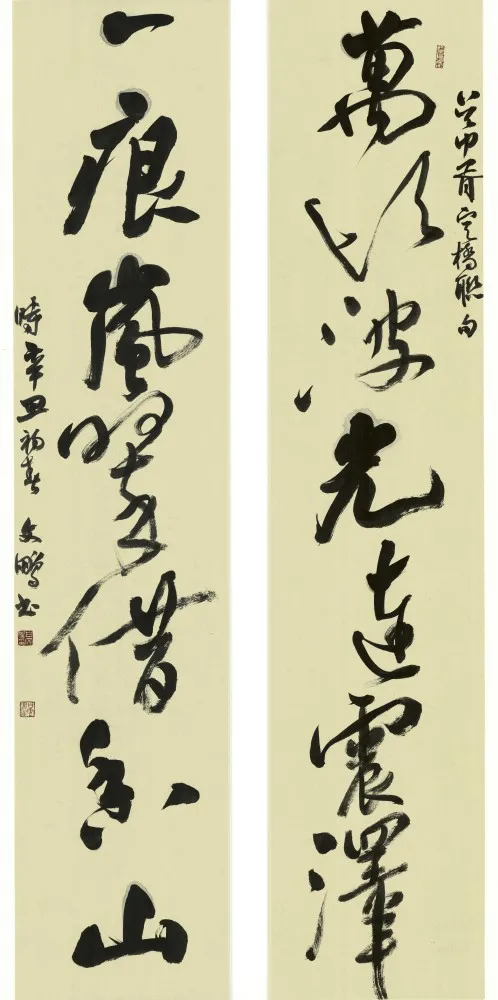 萬頃波光連震澤
吳中胥定橋聯句
一痕嵐翠借香山
時辛丑初春 文鵬書